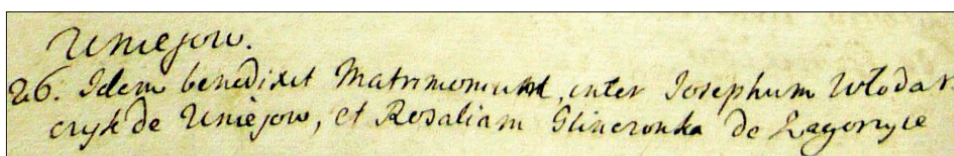 Uniejow.
26. Idem benedixit Matrimonium, inter Josephum Włodar-
czyk de Uniejow, et Rosaliam Glinczonka de Zagorzyce